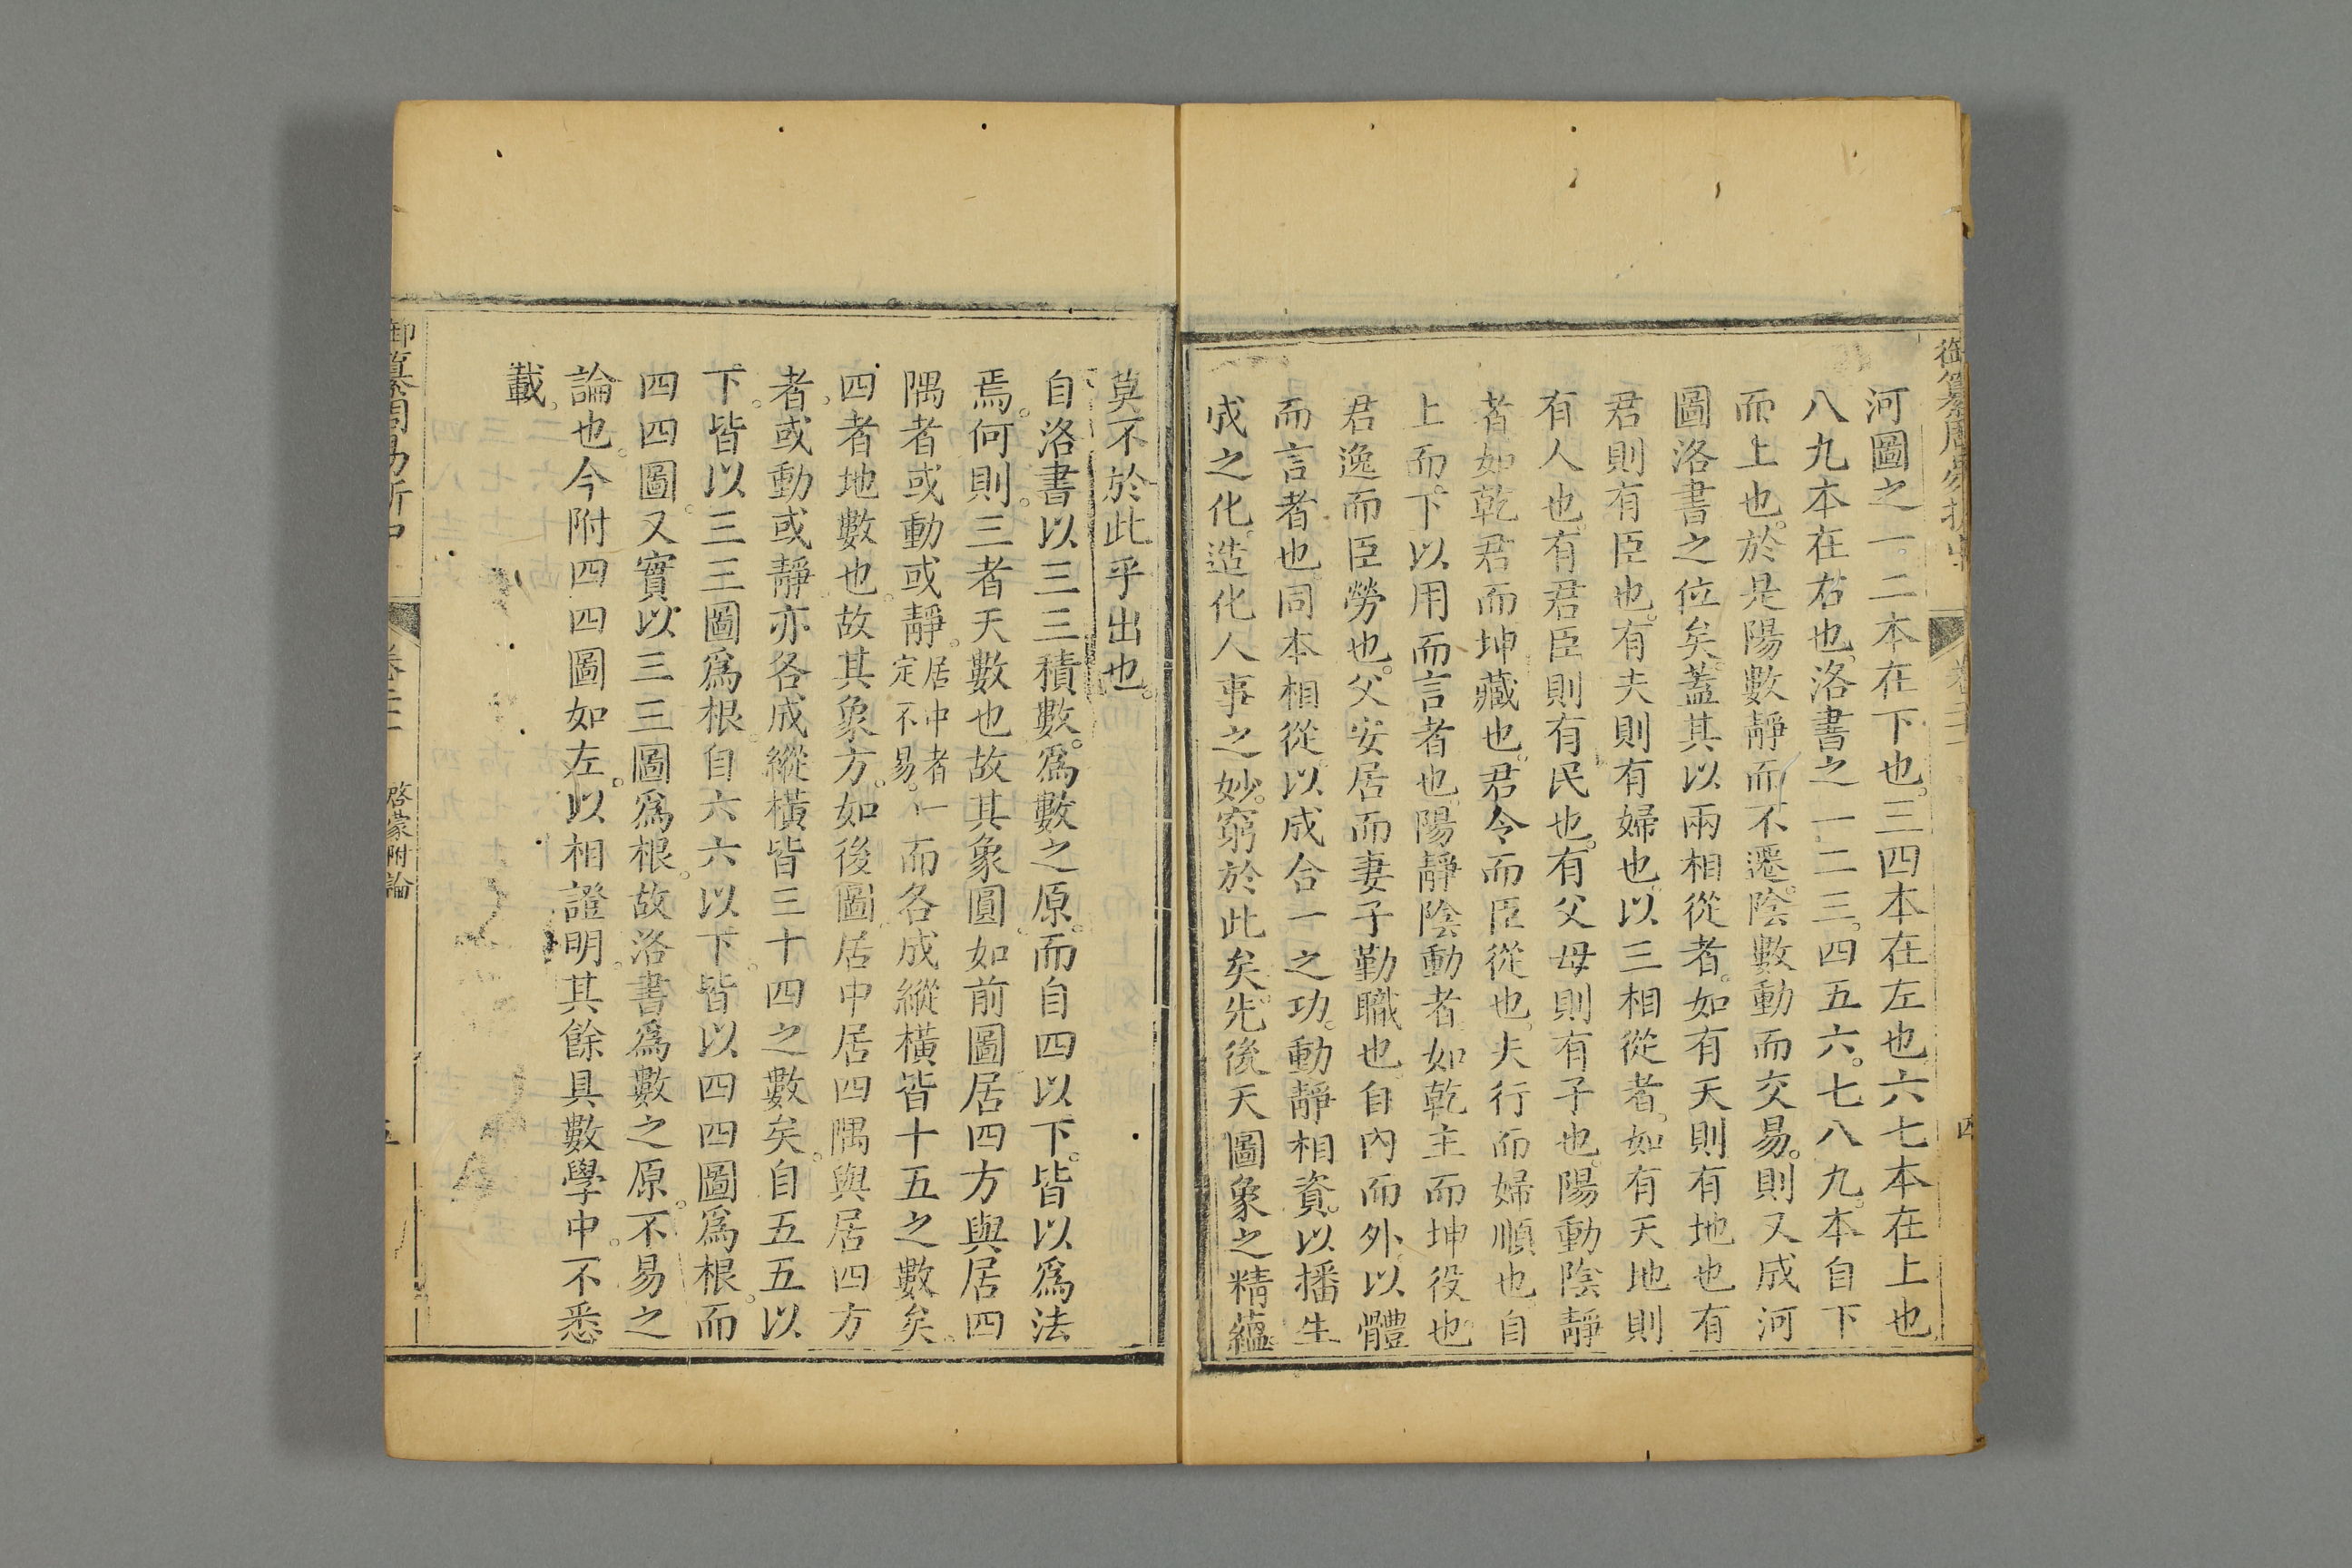 河圖之一二本在下也。三四本在左也。六七本在上也。
八九本在右也。洛書之一二三。四五六。七八九。本自下
而上也。於是陽數靜而不遷。陰數動而交易。則又成河
圖洛書之位矣。蓋其以兩相從者。如有天則有地也。有
君則有臣也。有夫則有婦也。以三相從者。如有天地則
有人也。有君臣則有民也。有父母則有子也。陽動陰靜
者。如乾君而坤藏也。君令而臣從也。夫行而婦順也。自
上而下。以用而言者也。陽靜陰動者。如乾主而坤役也。
君逸而臣勞也。父安居而妻子勤職也。自內而外。以體
而言者也。同本相從。以成合一之功。動靜相資。以播生
成之化。造化人事之妙。窮於此矣。先後天圖象之精蘊。
莫不於此乎出也。
自洛書以三三積數。爲數之原。而自四以下。皆以爲法
焉。何則。三者天數也。故其象圓。如前圖居四方與居四
隅者。或動或靜。居中者一定不易。而各成縱橫皆十五之數矣。
四者地數也。故其象方。如後圖。居中居四隅與居四方
者。或動或靜。亦各成縱橫皆三十四之數矣。自五五以
下。皆以三三圖爲根。自六六以下。皆以四四圖爲根。而
四四圖。又實以三三圖爲根。故洛書爲數之原。不易之
論也。今附四四圖如左。以相證明。其餘具數學中。不悉
載。
御纂周易折中
卷二十
啓蒙附論
五